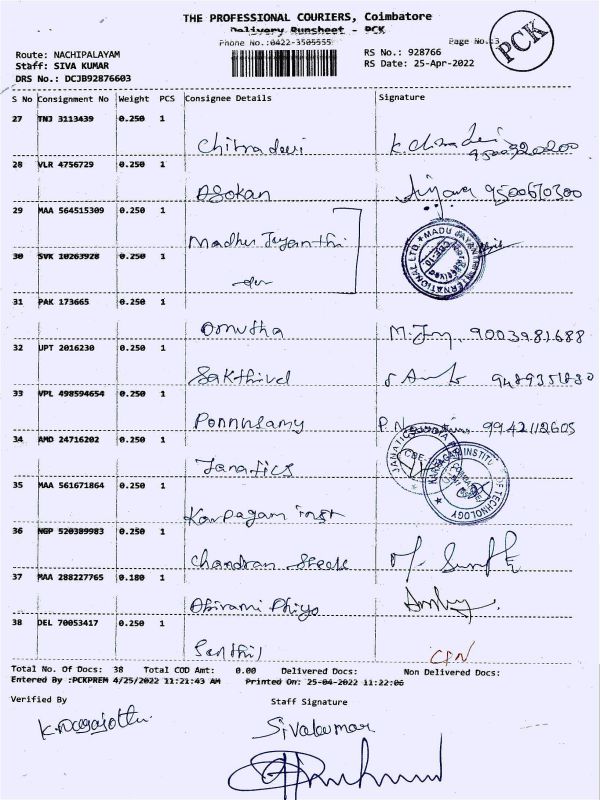 THE PROFESSIONAL COURIERS, Coimbatore
Delivery Runsheet - PCK
Phone No.:0422-3505555
Page No.:3
PCK
Route: NACHIPALAYAM
Staff: SIVA KUMAR
DRS No.: DCJB92876603
RS No.: 928766
RS Date: 25-Apr-2022
S No Consignment No Weight PCS Consignee Details Signature
27 TNJ 3113439 0.250 1
Chitradevi K. Chitra devi 9500320200
28 VLR 4756729 0.250 1
Asokan 9500670300
29 MAA 564515309 0.250 1
Madhu Jayanthi
30 SVK 10263928 0.250 1
do
MADU JAYANTI INTERNATIONAL LTD.
CBE-10
31 PAK 173665 0.250 1
Omutha 9003981688
32 UPT 2016230 0.250 1
Sakthivel
33 VPL 498594654 0.250 1
Ponnusamy 9942112605
34 AMD 24716202 0.250 1
Janatics
JANATICS INDIA
CBE
35 MAA 561671864 0.250 1
Karpagam inst
KARPAGAM INSTITUTE OF TECHNOLOGY
36 NGP 520389983 0.250 1
Chandran Steels
37 MAA 288227765 0.180 1
Abirami Phiyo
38 DEL 70053417 0.250 1
Senthil
Total No. Of Docs: 38 Total COD Amt: 0.00 Delivered Docs: Non Delivered Docs:
Entered By :PCKPREM 4/25/2022 11:21:43 AM Printed On: 25-04-2022 11:22:06
Verified By Staff Signature
Sivakumar